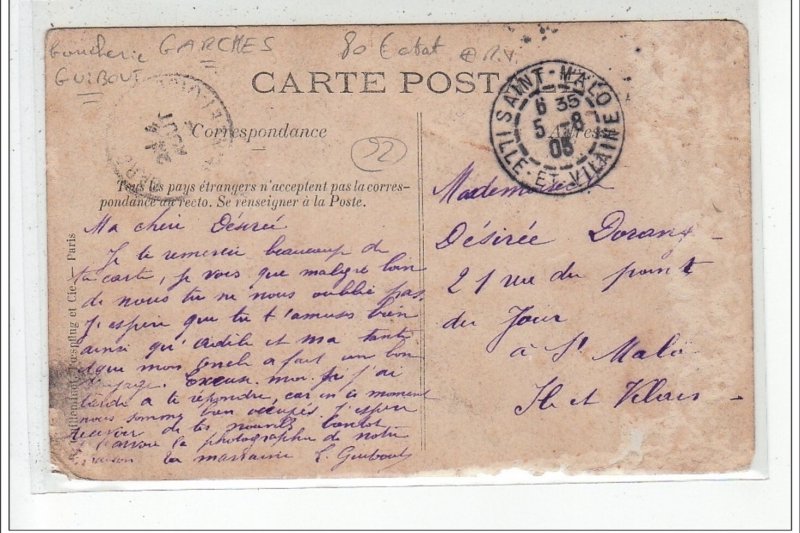 boucherie GARCHES 80 Ec
GUIBOUT
CARTE POST
SAINT-MALO
6 35
5 -8
05
ILLE-ET-VILAINE
AOUT
Correspondance
92
Tous les pays étrangers n'acceptent pas la corres-
pondance au recto. Se renseigner à la Poste.
et Cie. — Paris
Ma chère Désirée
Je te remercie beaucoup de
ta carte, je vois que malgré loin
de nous tu ne nous oublie pas.
J'espère que tu t'amuses bien
ainsi qu' et ma tante
que mon oncle a fait un bon
voyage. Excuse moi si j'ai
tardé à te répondre, car en ce moment
nous sommes bien occupés. J'espère
recevoir de tes nouvelles bientôt
la photographie de notre
maison ta marraine L. Guibout
Mademoiselle
Désirée
21 rue du point
du Jour
à St Malo
Ile et Vilaine